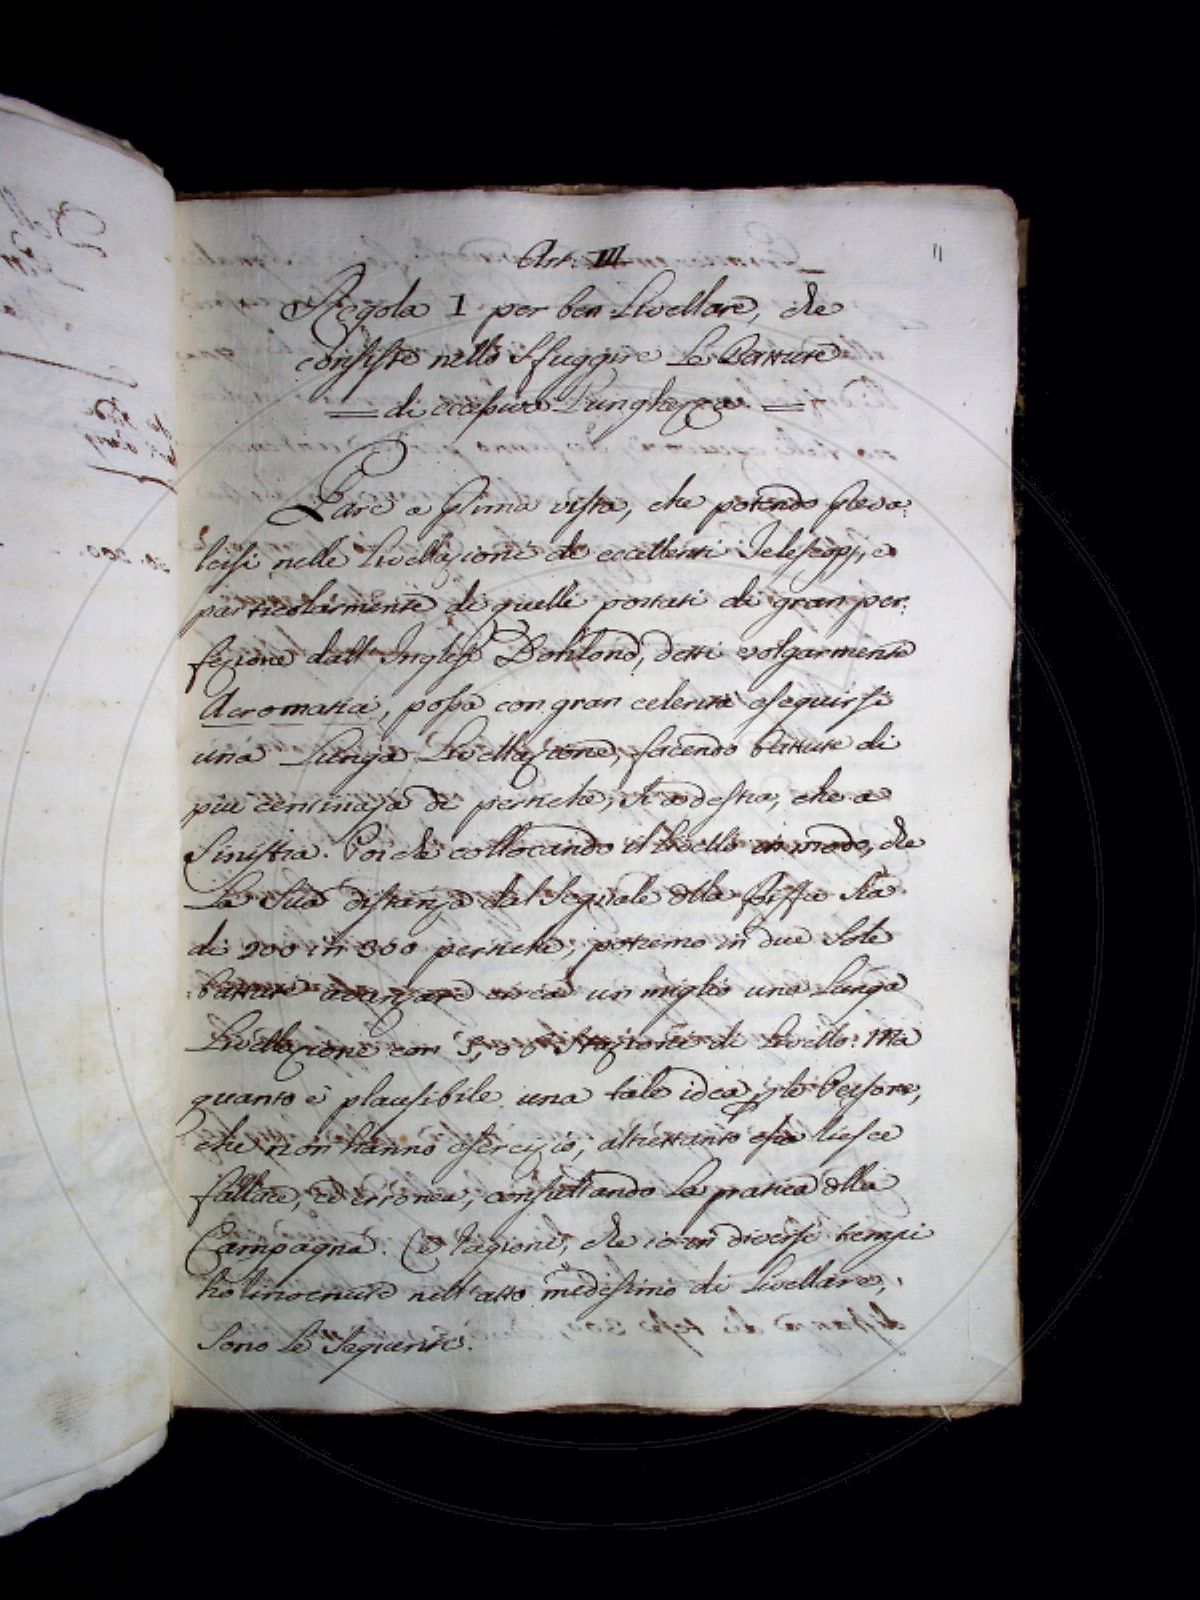 11
Art. III
Regola I per ben Livellare, che
consiste nello Sfuggire Le Battute
= di eccessiva Lunghezza. =
Pare a prima vista, che potendo preva:
lersi nelle Livellazioni di eccellenti Telescopj, e
particolarmente di quelli portati di gran per:
fezione dall' Inglese Dohlond, detti volgarmente
Acromatici, possa con gran celerità eseguirsi
una Lunga Livellazione, facendo battute di
più centinaja di pertiche, sì a destra, che a
Sinistra. Poi che collocando il livello in modo, che
La Sua distanza dal Segnale dlla Biffa Sia
di 200 in 300 pertiche; potremo in due Sole
battute avanzare circa un miglio una Lunga
Livellazione con 5, o 6 Stazioni di Livello. Ma
quanto è plausibile una tale idea p le Persone,
che non hanno esercizio, altrettanto essa riesce
fallace, ed erronea, consultando La pratica dlla
Campagna. Le ragioni, che io in diversi tempi
ho rinvenute nell' atto medesimo di Livellare,
Sono Le Seguenti.
200.